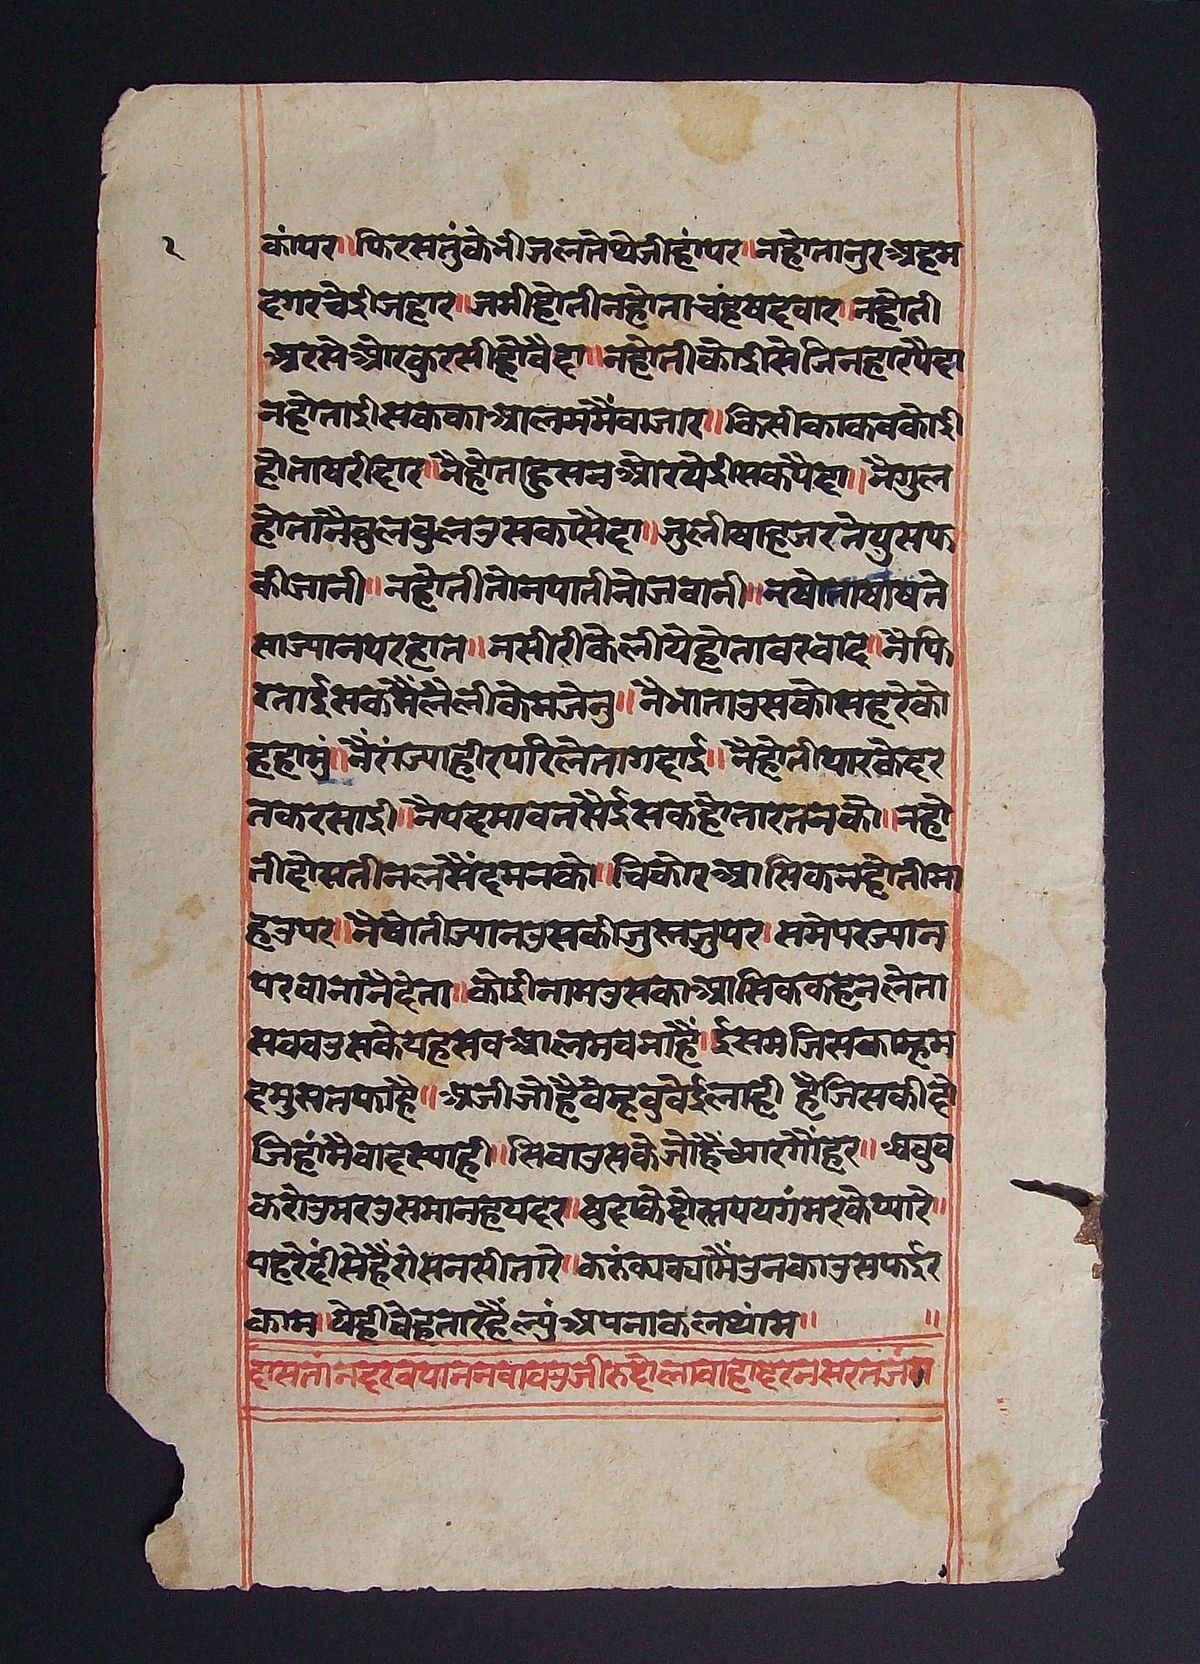 २
कांपर॥फिरसतुंकेनीजलतेथेजीहांपर॥नहोतानुरअहम
दगरचेईीजहार॥जमीहोतीनहोताचंद्रषदवार॥नहोती
अरसेओरकुरसीहोवैदा॥नहोतीकोईीसेजिनहारपैदा
नहोताईीसककाआलममैंवाजार॥किसीकाकवकोईी
होताषरीदार॥नैहोताहुसनओरयेईीसकपैदा॥नैगुल
होतानैवुलवुलउसकासैदा॥जुलीषाहजरतेयुसफ
कीजानी॥नहोतीतोनपातीनोजवानी॥नषोताषाषते
साज्यानपरहात॥नसीरीकेलीयेहोतावरवाद॥नैफि
रताईसकसैंलैलीकेमजेनु॥नैभाताउसकोसहरेको
हहामुं॥नैंरांज्याहीरपरिलेतागदाई॥नैहोतीयारकेदर
तकरसाईी॥नैपदमावतसैईसकहोतारतनको॥नहो
तीदोसतीनलसैंदमनको॥चिकोरआसिकनहोतीमा
हउपर॥नैषोतीज्यानउसकीजुस्तजुपर॥समेपरज्यान
परवानांनैदेता॥कोईीनामउसकाआसिककहेनलेता
सववउसकैयहसवआलमवमाहैं॥ईसमजिसकाम्हम
दमुसतफाहै॥अजीजोहैवेम्हवुवेईलाही हैजिसकीदो
जिहांमैवादस्याही॥सिवाउसकेजोहैंच्यारगोंहर॥अवुव
करोउमरउसमानहयदर॥षुदाकेदोस्तपयगंमरकेप्यारे॥
पहरेदींसेहैंरोसनसीतारे॥करुंक्यक्यामैंउनकाउसफईर
काम॥येहीवेहतारहैंल्युंअपनाकलथांम॥ ॥